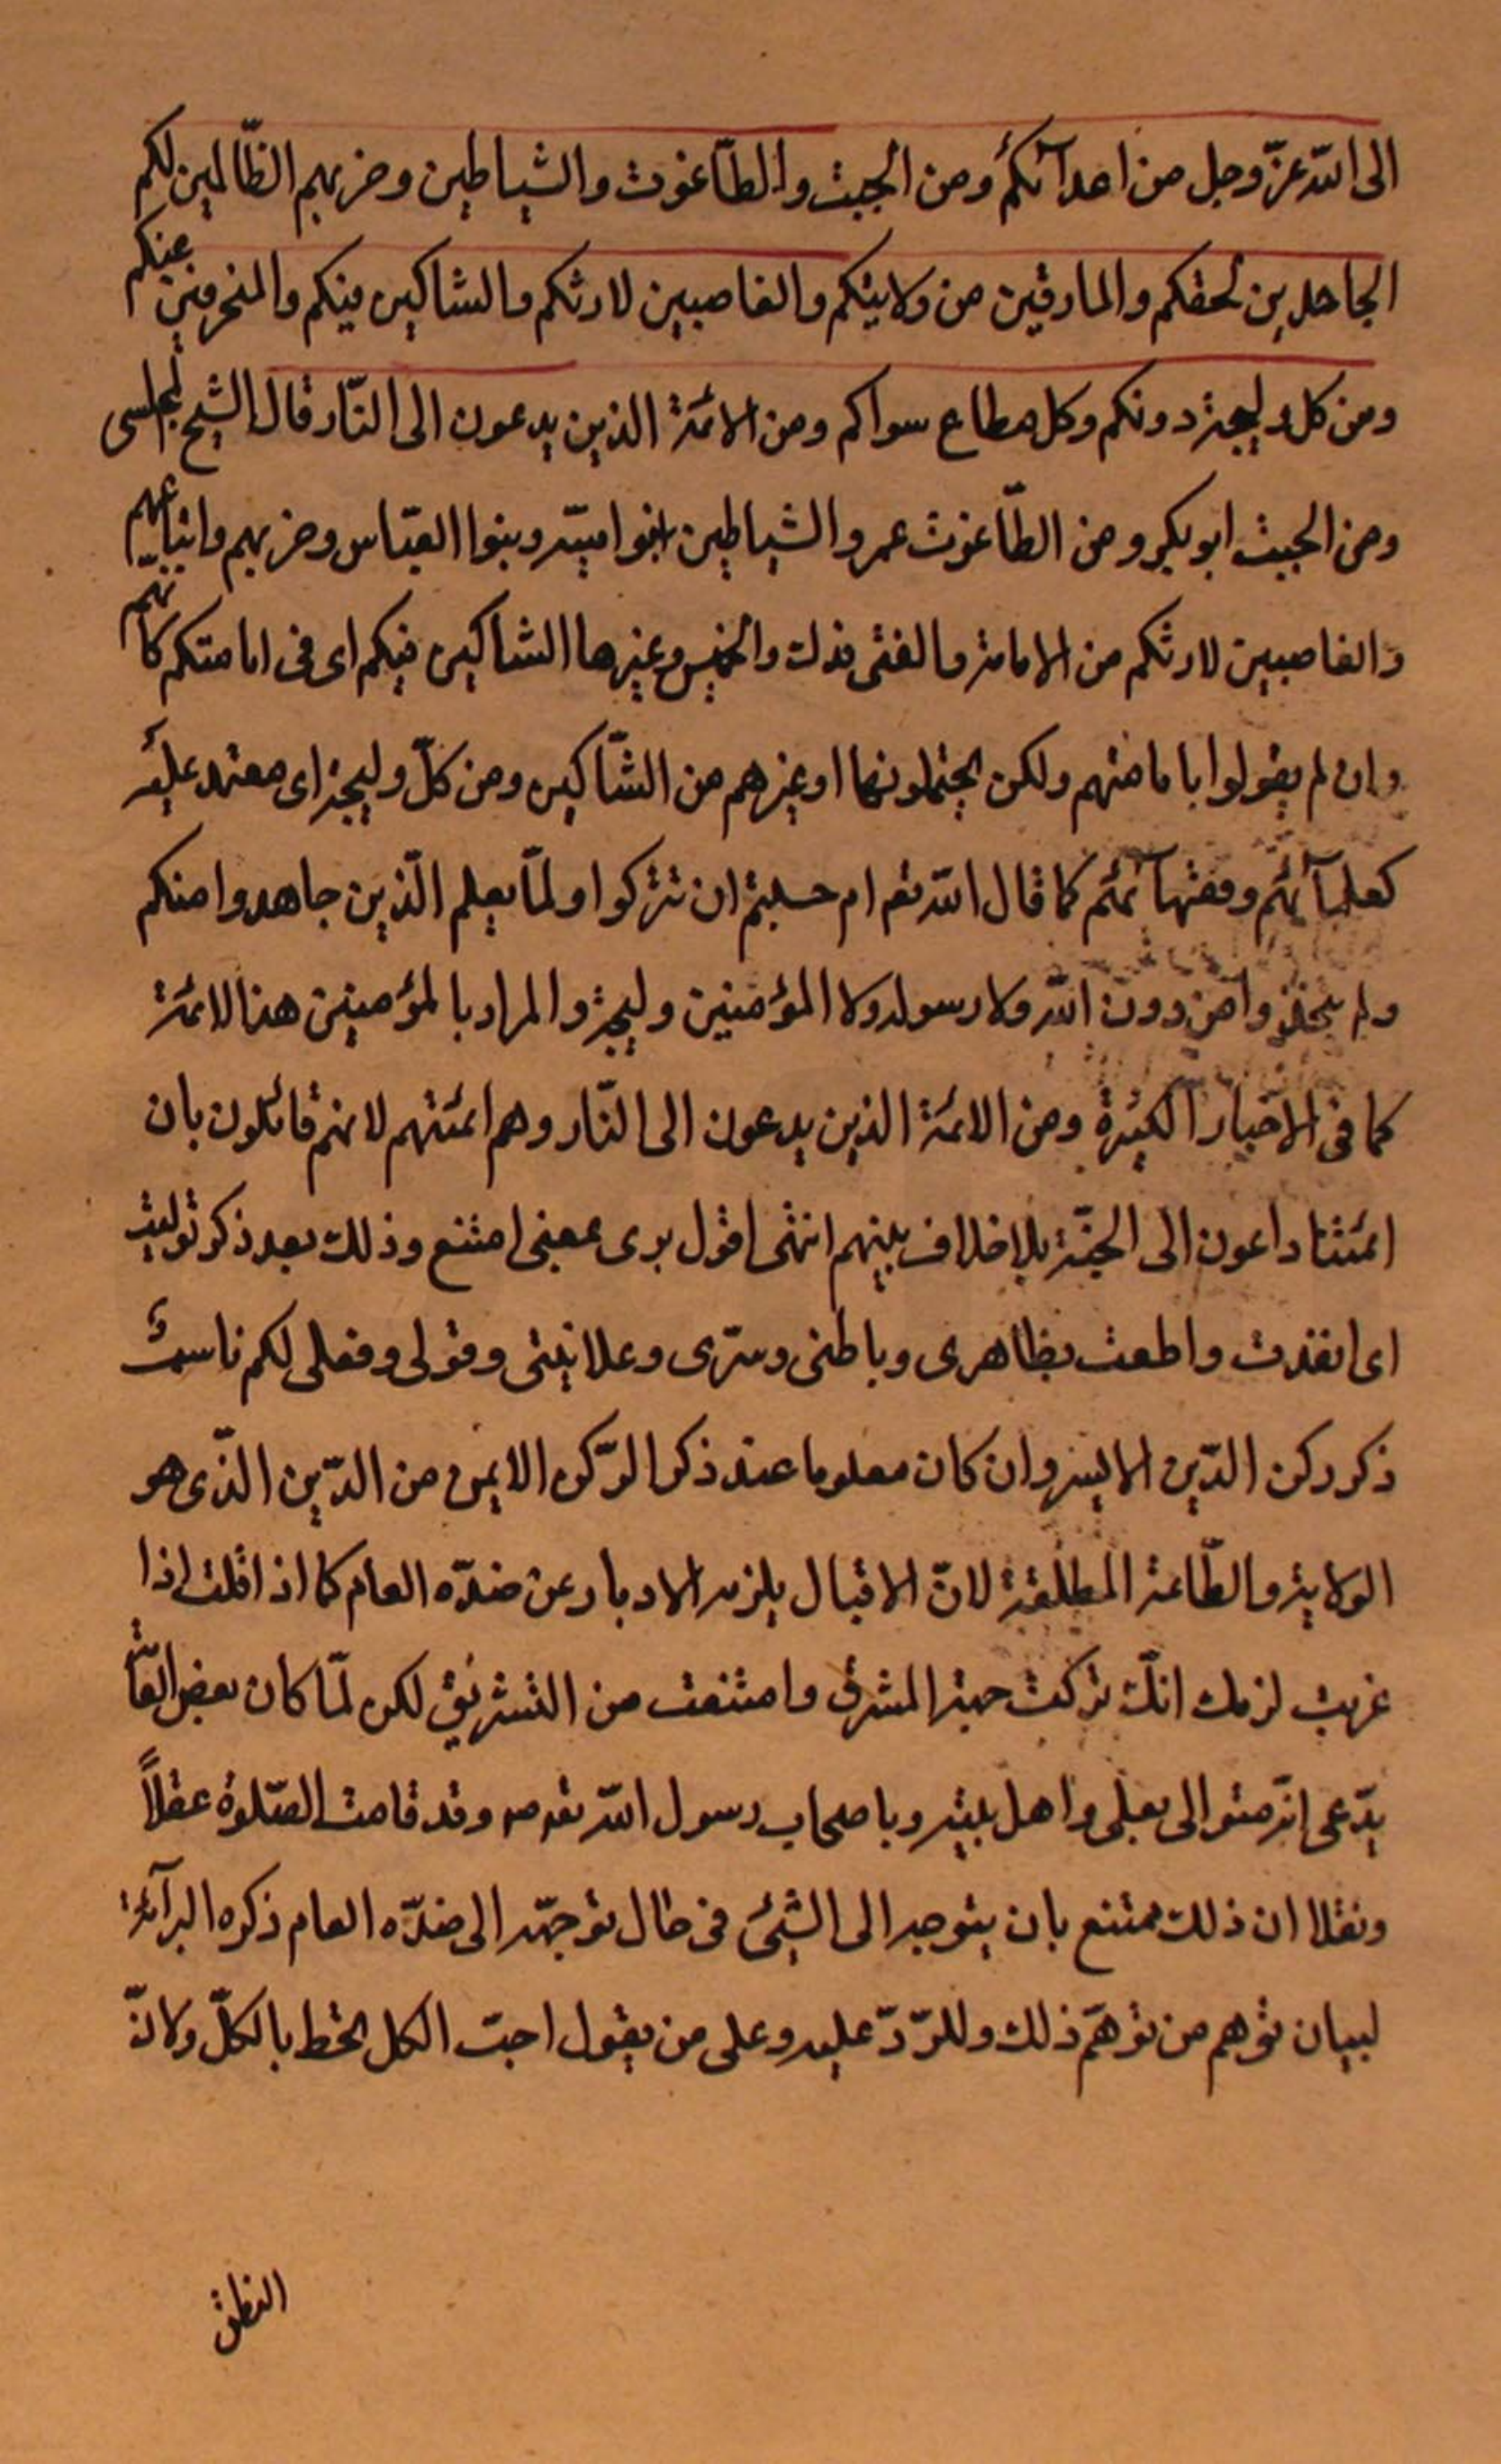 الى الله عزّ وجل من اعدآئكم ومن الجبت والطّاغوت والشياطين وحزبهم الظّالمين لكم
الجاحدين لحقكم والمارقين من ولايتكم والغاصبين لارثكم والشاكين فيكم والمنحرفين عنكم
ومن كل وليجة دونكم وكل مطاع سواكم ومن الائمّة الذين يدعون الى النّار قال الشيخ المجلسى
ومن الجبت ابو بكر ومن الطّاغوت عمر والشياطين بنوا اميّه وبنوا العبّاس وحزبهم واتباعهم
والغاصبين لارثكم من الامامة والفئى فدك والخمس وغيرها الشاكين فيكم اى فى امامتكم كانّهم
وان لم يقولوا بامامتهم ولكن يحتملونها او غيرهم من الشّاكين ومن كلّ وليجة اى معتمد عليه
كعلمآئهم وفقهآئهم كما قال الله تعم ام حسبتم ان تتركوا ولمّا يعلم الّذين جاهدوا منكم
ولم يتخذوا من دون الله ولا رسوله ولا المؤمنين وليجة والمراد بالمؤمنين هنا الائمّة
كما فى الاخبار الكثيرة ومن الائمّة الذين يدعون الى النّار وهم ائمّتهم لانهم قائلون بان
ائمّتنا داعون الى الجنّة بلا خلاف بينهم انتهى اقول برى بمعنى امتنع وذلك بعد ذكر توليت
اى انقدت واطعت بظاهرى وباطنى وسرّى وعلانيتى وقولى وفعلى لكم ناسب
ذكر ركن الدّين الايسر وان كان معلوما عند ذكر الرّكن الايمن من الدّين الذّى هو
الولاية والطّاعة المطلقة لانّ الاقبال يلزمه الادبار عن ضدّه العام كما اذا قلت اذا
غربت لزمك انّك تركت جهة المشرق وامتنعت من التشريق لكن لمّا كان بعض
يدّعى انّه متوالى بعلى واهل بيته وباصحاب رسول الله ص وقد قامت الضّلوة عقلاً
ونقلا ان ذلك ممتنع بان يتوجه الى الشيئ فى حال توجهّه الى ضدّه العام ذكره البرآئة
لبيان توهم من توهّم ذلك وللرّدّ عليه وعلى من يقول احبّ الكل بالكلّ ولانّ
النطق